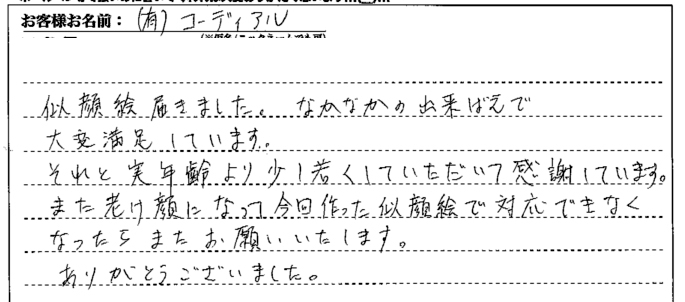 お客様お名前：(有)コーディアル
似顔絵届きました。なかなかの出来ばえで
大変満足しています。
それと実年齢より少し若くしていただいて感謝しています。
また老け顔になって今回作った似顔絵で対応できなく
なったらまたお願いいたします。
ありがとうございました。